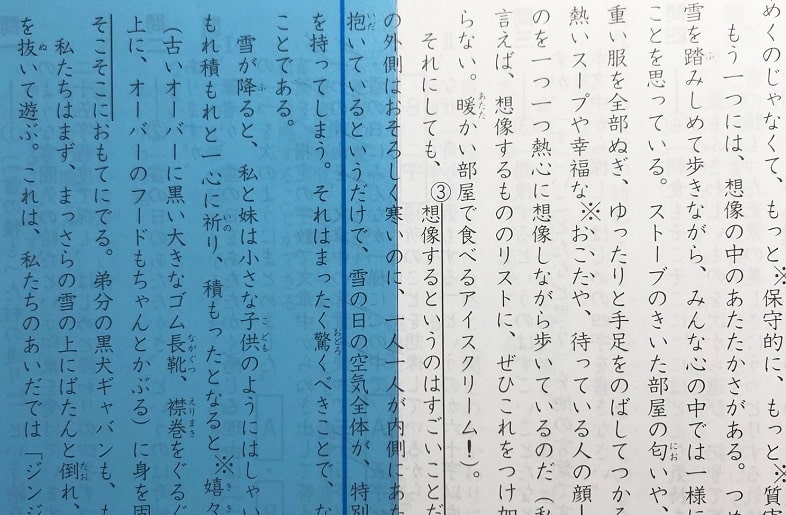 めくのじゃなくて、もっと※保守的に、もっと※質実
もう一つには、想像の中のあたたかさがある。つめ
雪を踏みしめて歩きながら、みんな心の中では一様に
ことを思っている。ストーブのきいた部屋の匂いや、
重い服を全部ぬぎ、ゆったりと手足をのばしてつかる
熱いスープや幸福な※おこたや、待っている人の顔―
のを一つ一つ熱心に想像しながら歩いているのだ（私
言えば、想像するもののリストに、ぜひこれをつけ加
らない。暖かい部屋で食べるアイスクリーム！）。
それにしても、③想像するというのはすごいことだ
の外側はおそろしく寒いのに、一人一人が内側にあた
抱いているというだけで、雪の日の空気全体が、特別
を持ってしまう。それはまったく驚くべきことで、な
ことである。
雪が降ると、私と妹は小さな子供のようにはしゃい
もれ積もれと一心に祈り、積もったとなると※嬉々
（古いオーバーに黒い大きなゴム長靴、襟巻をぐるぐ
上に、オーバーのフードもちゃんとかぶる）に身を固
そこそこにおもてにでる。弟分の黒犬ギャバンも、
私たちはまず、まっさらの雪の上にばたんと倒れ、
を抜いて遊ぶ。これは、私たちのあいだでは「ジンジ